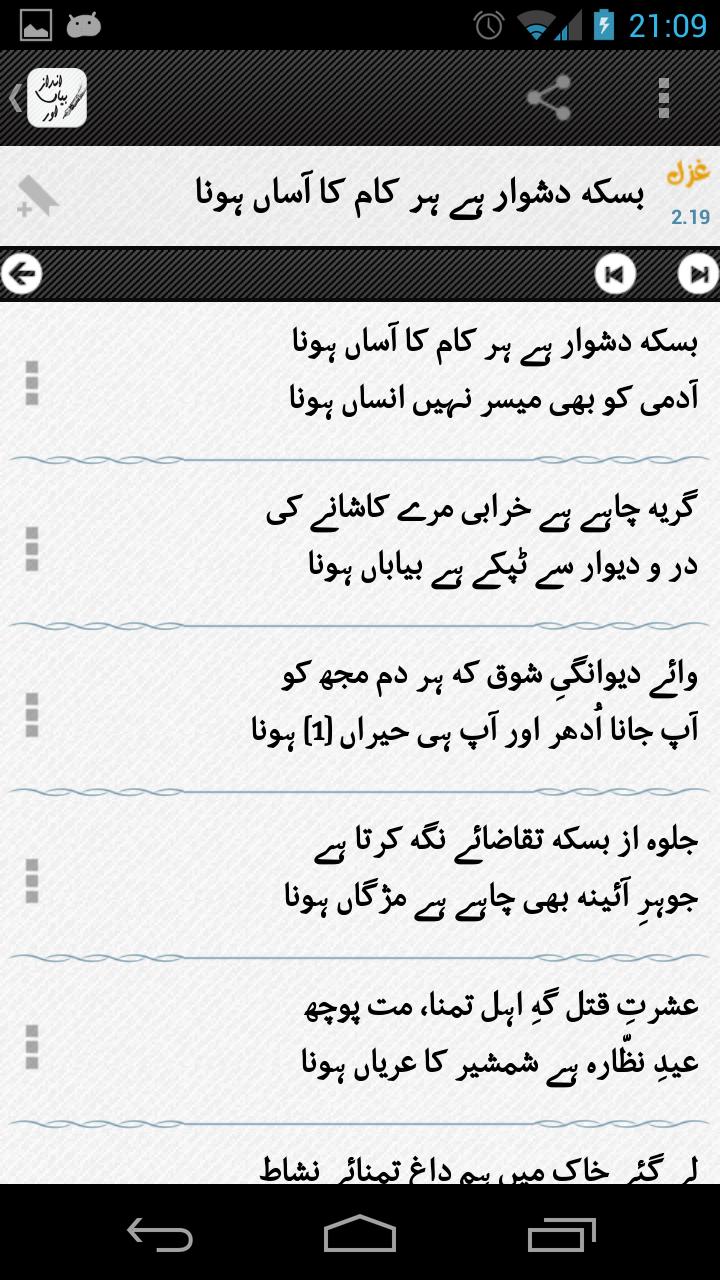 21:09
انداز
بیاں
اور
غزل
بسکہ دشوار ہے ہر کام کا آساں ہونا
2.19
بسکہ دشوار ہے ہر کام کا آساں ہونا
آدمی کو بھی میسر نہیں انساں ہونا
گریہ چاہے ہے خرابی مرے کاشانے کی
در و دیوار سے ٹپکے ہے بیاباں ہونا
وائے دیوانگیِ شوق کہ ہر دم مجھ کو
آپ جانا اُدھر اور آپ ہی حیراں [1] ہونا
جلوہ از بسکہ تقاضائے نگہ کرتا ہے
جوہرِ آئینہ بھی چاہے ہے مژگاں ہونا
عشرتِ قتل گہِ اہل تمنا، مت پوچھ
عیدِ نظّارہ ہے شمشیر کا عریاں ہونا
لے گئے خاک میں ہم داغ تمنائے نشاط